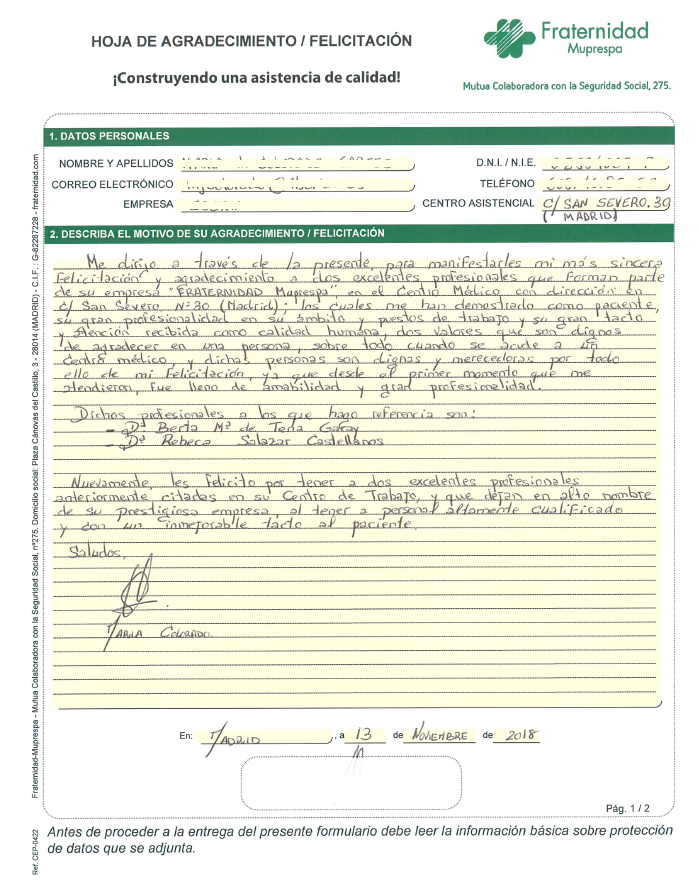 HOJA DE AGRADECIMIENTO / FELICITACIÓN
Fraternidad
Muprespa
¡Construyendo una asistencia de calidad!
Mutua Colaboradora con la Seguridad Social, 275.
1. DATOS PERSONALES
NOMBRE Y APELLIDOS
D.N.I. / N.I.E.
CORREO ELECTRÓNICO
TELÉFONO
EMPRESA
CENTRO ASISTENCIAL C/ SAN SEVERO. 30
(MADRID)
2. DESCRIBA EL MOTIVO DE SU AGRADECIMIENTO / FELICITACIÓN
Me dirijo a través de la presente, para manifestarles mi más sincera
Felicitación y agradecimiento a dos excelentes profesionales que forman parte
de su empresa "FRATERNIDAD Muprespa", en el Centro Médico con dirección en
c/ San Severo Nº 30 (Madrid); los cuales me han demostrado como paciente,
su gran profesionalidad en su ámbito y puestos de trabajo y su gran tacto
y Atención recibida como calidad humana, dos valores que son dignas
de agradecer en una persona, sobre todo cuando se acude a un
Centro médico y dichas personas son dignas y merecedoras por todo
ello de mi felicitación, ya que desde el primer momento que me
atendieron, fue lleno de amabilidad y gran profesionalidad.
Dichos profesionales a los que hago referencia son:
- Dª Berta Mª de Teria Garay
- Dª Rebeca Salazar Castellanos
Nuevamente, les felicito por tener a dos excelentes profesionales
anteriormente citadas en su Centro de Trabajo, y que dejan en alto nombre
de su prestigiosa empresa, al tener a personal altamente cualificado
y con un inmejorable tacto al paciente.
Saludos,
MARIA COLORADO.
En: MADRID, a 13 de NOVIEMBRE de 2018
Pág. 1 / 2
Antes de proceder a la entrega del presente formulario debe leer la información básica sobre protección
de datos que se adjunta.
Fraternidad-Muprespa - Mutua Colaboradora con la Seguridad Social, nº275. Domicilio social: Plaza Cánovas del Castillo, 3 - 28014 (MADRID) - C.I.F. : G-82287228 - fraternidad.com
Ref. CEP-0422